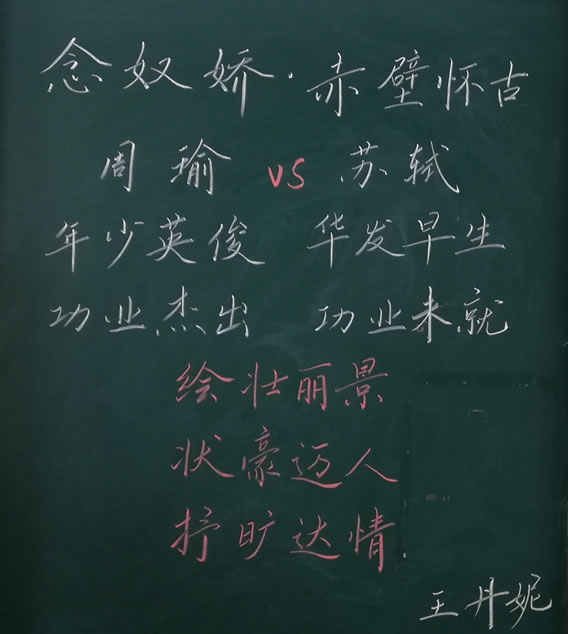 念奴娇·赤壁怀古
周瑜 vs 苏轼
年少英俊 华发早生
功业杰出 功业未就
绘壮丽景
状豪迈人
抒旷达情
王丹妮